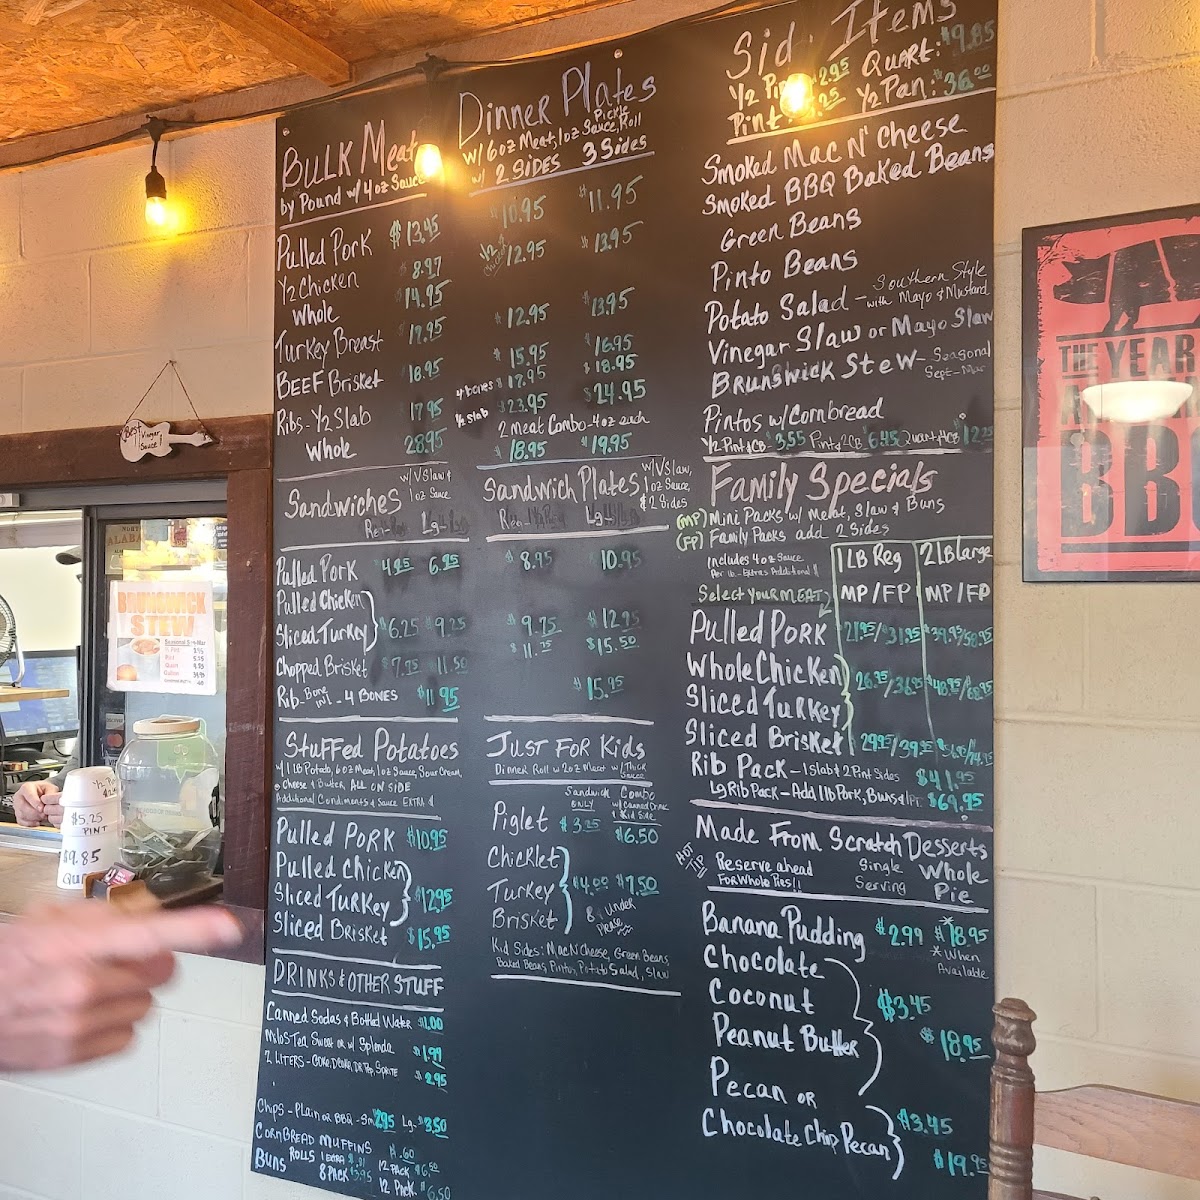 BULK Meat
by Pound w/ 4 oz Sauce
Pulled Pork $13.45
1/2 Chicken 8.97
Whole $14.95
Turkey Breast $17.95
BEEF Brisket $18.95
Ribs - 1/2 Slab 17.95
Whole 28.95
Dinner Plates
w/ 6 oz Meat, 1 oz Sauce, Pickle, Roll
w/ 2 SIDES 3 Sides
$10.95 $11.95
1/2 Chicken $12.95 $13.95
$12.95 $13.95
$15.95 $16.95
4 bones $17.95 $18.95
1/2 slab $23.95 $24.95
2 Meat Combo - 4 oz each
$18.95 $19.95
Sandwiches w/ VSlaw & 1 oz Sauce
Reg- Lg-
Pulled Pork 4.95 6.95
Pulled Chicken
Sliced Turkey $6.25 $9.25
Chopped Brisket $7.75 $11.50
Rib - Bone in - 4 BONES $11.95
Sandwich Plates w/ VSlaw, 1 oz Sauce, & 2 Sides
Reg- Lg-
$8.95 10.95
$9.75 $12.95
$11.75 $15.50
$15.95
Stuffed Potatoes
w/ 1 LB Potato, 6 oz Meat, 1 oz Sauce, Sour Cream,
Cheese & Butter ALL ON SIDE
Additional Condiments & Sauce EXTRA
Pulled Pork $10.95
Pulled Chicken
Sliced Turkey $12.95
Sliced Brisket $15.95
JUST FOR Kids
Dinner Roll w/ 2 oz Meat w/ Thick Sauce
Sandwich ONLY Combo w/ Canned Drink & Kid Side
Piglet $3.25 $6.50
Chicklet
Turkey $4.00 $7.50
Brisket 8 & under Please
Kid Sides: Mac N Cheese, Green Beans
Baked Beans, Pintos, Potato Salad, Slaw
DRINKS & OTHER STUFF
Canned Sodas & Bottled Water $1.00
Milo's Tea Sweet or w/ Splenda $1.99
2 LITERS - COKE, D.COKE, DR Pep, SPRITE $2.95
Chips - Plain or BBQ - Sm 2.95 Lg. $3.50
CORNBREAD MUFFINS 1.60
Buns ROLLS 1 EXTRA 12 PACK $6.50
8 PACK $3.95 12 Pack $6.50
Side Items
1/2 Pint $2.95 QUART: $9.85
Pint: 5.25 1/2 Pan: $36.00
Smoked Mac N' Cheese
Smoked BBQ Baked Beans
Green Beans
Pinto Beans
Potato Salad - Southern Style with Mayo & Mustard
Vinegar Slaw or Mayo Slaw
Brunswick Stew - Seasonal Sept-Mar
Pintos w/ Cornbread
1/2 Pint & CB $3.55 Pint & 2CB $6.45 Quart & 4CB
Family Specials
(MP) Mini Packs w/ Meat, Slaw & Buns
(FP) Family Packs add 2 Sides
includes 4 oz Sauce
Per lb. - Extras Additional
1 LB Reg 2 LB Large
Select Your MEAT MP / FP MP / FP
Pulled Pork 21.95 / 31.95 39.95 / 58.95
Whole Chicken
Sliced Turkey 26.95 / 36.95 48.95 / 68.95
Sliced Brisket 29.95 / 39.95
Rib Pack - 1 Slab & 2 Pint Sides $41.95
Lg Rib Pack - Add 1 lb Pork, Buns & 1 PT $69.95
Made From Scratch Desserts
HOT TIP Reserve ahead For Whole Pies!! Single Serving Whole Pie
Banana Pudding $2.99 *$18.95
*When Available
Chocolate
Coconut $3.45
Peanut Butter $18.95
Pecan or
Chocolate Chip Pecan $3.45
$19.95
Best Vinegar Sauce!
BRUNSWICK
STEW
$5.25
PINT
$9.85
THE YEAR
BB